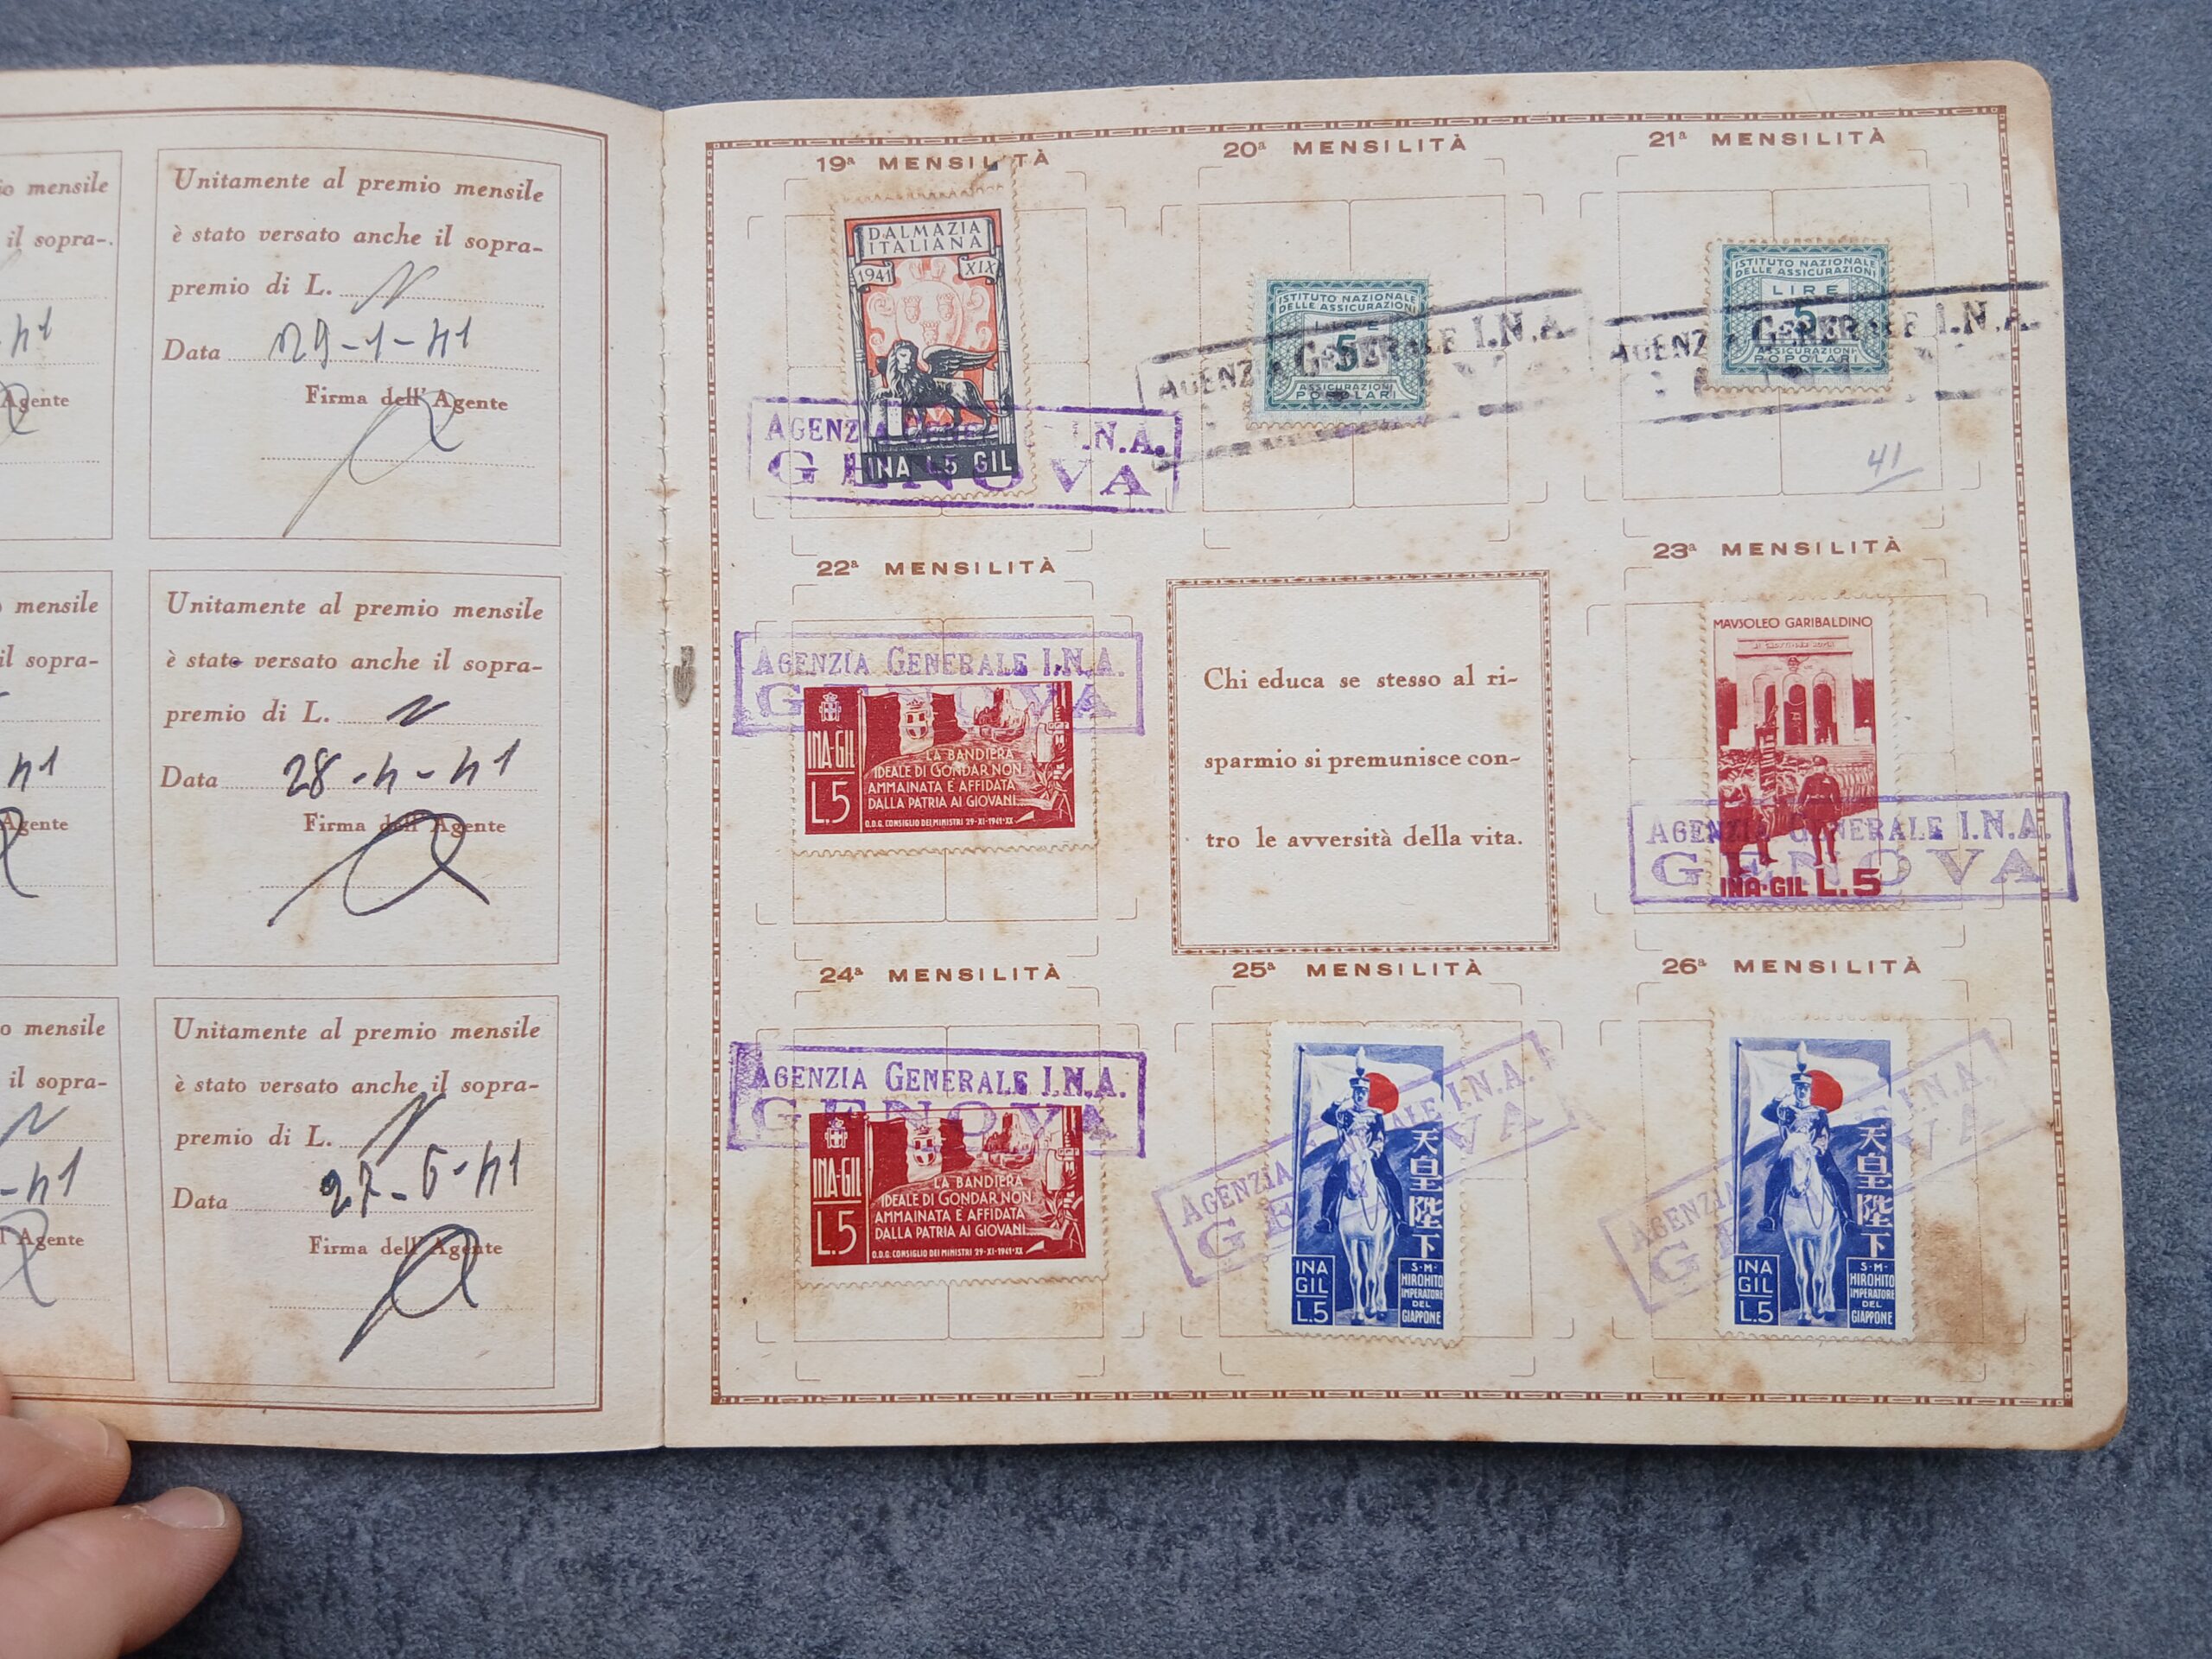 io mensile
il sopra-.
h1
Agente
Unitamente al premio mensile
è stato versato anche il sopra-
premio di L.
Data 29-1-41
Firma dell' Agente
mensile
il sopra-
41
Agente
Unitamente al premio mensile
è stato versato anche il sopra-
premio di L.
Data 28-4-41
Firma dell' Agente
o mensile
il sopra-
-41
l' Agente
Unitamente al premio mensile
è stato versato anche il sopra-
premio di L.
Data 27-6-41
Firma dell' Agente
19ª MENSILITÀ
DALMAZIA
ITALIANA
1941 XIX
INA L5 GIL
AGENZIA GENERALE I.N.A.
GENOVA
20ª MENSILITÀ
ISTITUTO NAZIONALE
DELLE ASSICURAZIONI
LIRE
5
ASSICURAZIONI
POPOLARI
AGENZIA GENERALE I.N.A.
21ª MENSILITÀ
ISTITUTO NAZIONALE
DELLE ASSICURAZIONI
LIRE
5
ASSICURAZIONI
POPOLARI
AGENZIA GENERALE I.N.A.
41
22ª MENSILITÀ
AGENZIA GENERALE I.N.A.
GENOVA
INA-GIL
L.5
LA BANDIERA
IDEALE DI GONDAR NON
AMMAINATA E' AFFIDATA
DALLA PATRIA AI GIOVANI...
O.D.G. CONSIGLIO DEI MINISTRI 29-XI-1941-XX
Chi educa se stesso al ri-
sparmio si premunisce con-
tro le avversità della vita.
23ª MENSILITÀ
MAVSOLEO GARIBALDINO
INA-GIL L.5
AGENZIA GENERALE I.N.A.
GENOVA
24ª MENSILITÀ
AGENZIA GENERALE I.N.A.
GENOVA
INA-GIL
L.5
LA BANDIERA
IDEALE DI GONDAR NON
AMMAINATA E' AFFIDATA
DALLA PATRIA AI GIOVANI...
O.D.G. CONSIGLIO DEI MINISTRI 29-XI-1941-XX
25ª MENSILITÀ
天皇陛下
INA
GIL
L.5
S·M·
HIROHITO
IMPERATORE
DEL
GIAPPONE
AGENZIA GENERALE I.N.A.
GENOVA
26ª MENSILITÀ
天皇陛下
INA
GIL
L.5
S·M·
HIROHITO
IMPERATORE
DEL
GIAPPONE
AGENZIA I.N.A.